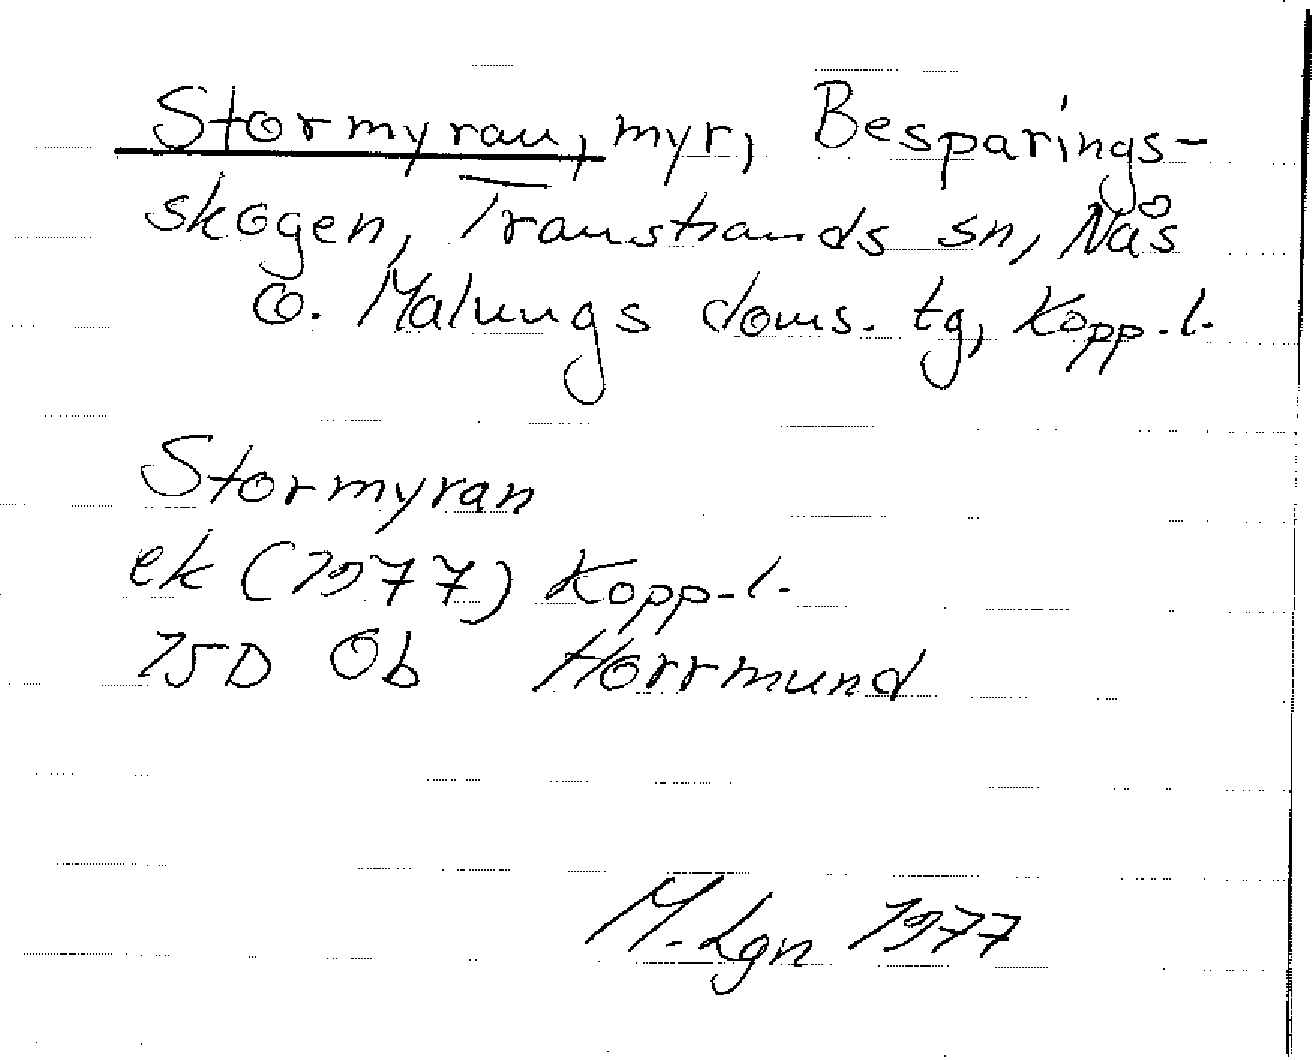 Stormyran, myr, Besparings-
skogen, Transtrands sn, Nås
o. Malungs doms. tg, Kopp.l.
Stormyran
ek (1977) Kopp.l.
15D 0b Horrmund
M. Lgn 1977